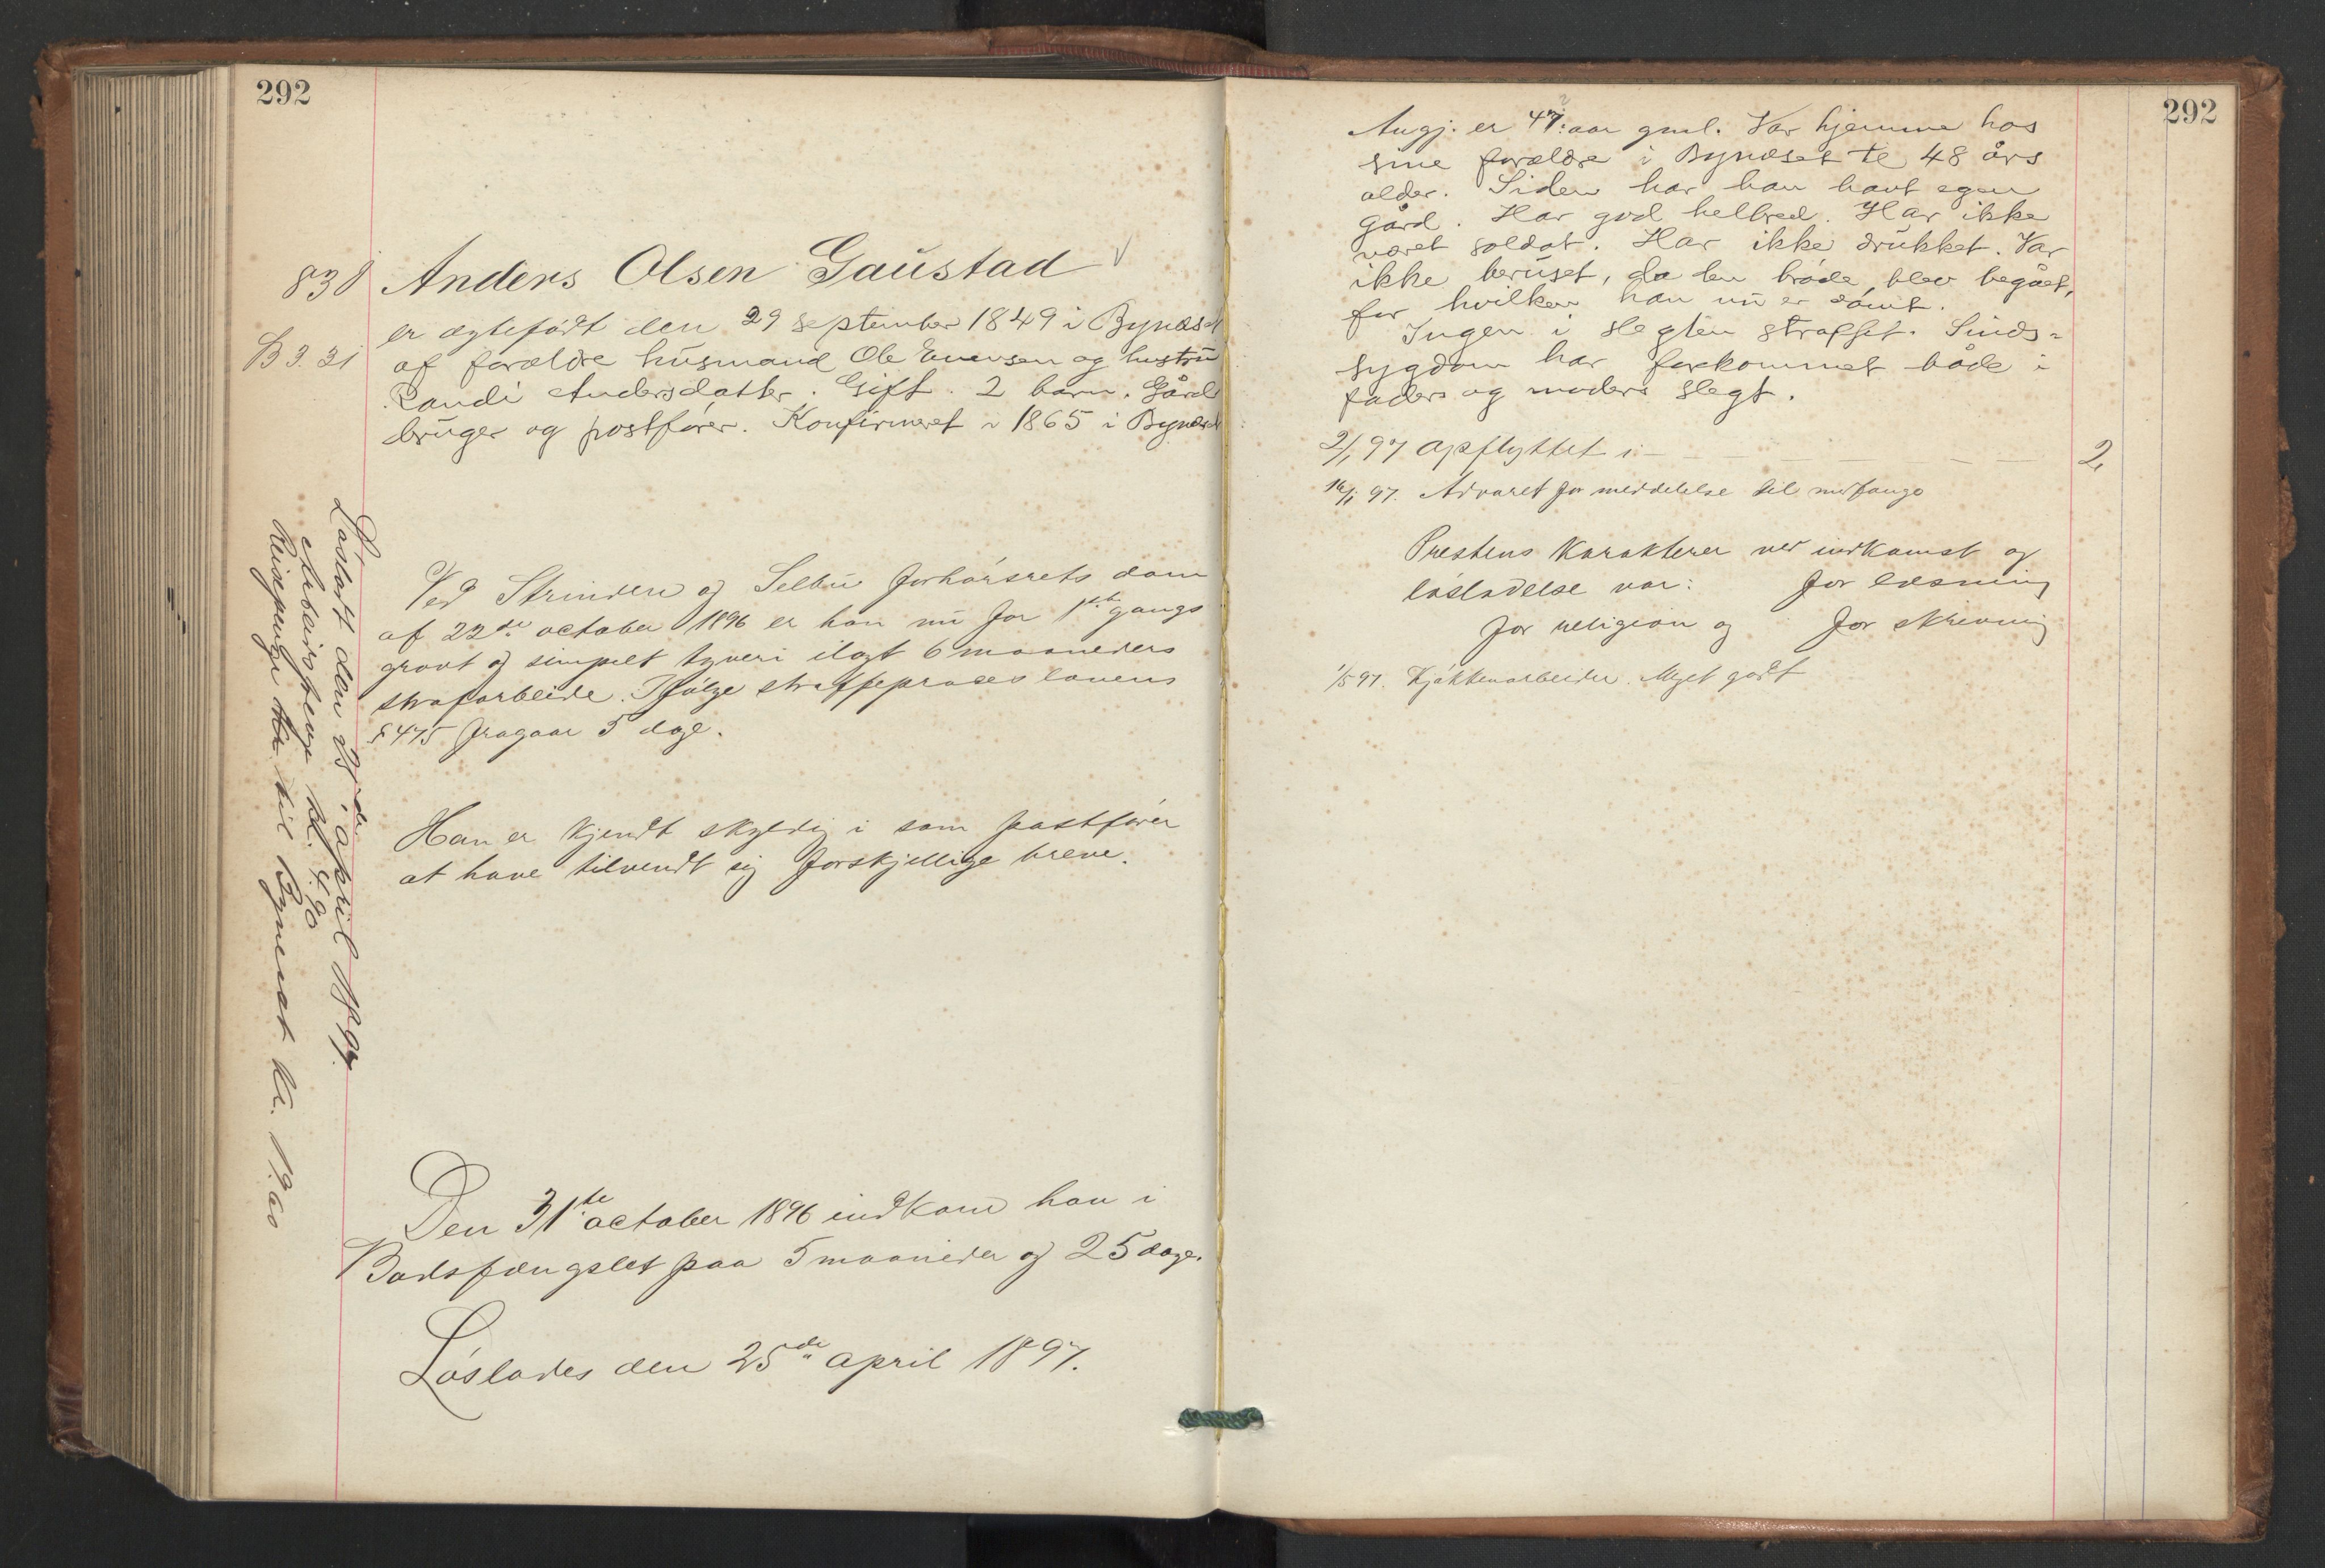 292
838 Anders Olsen Gaustad
er ægtefødt den 29 september 1849 i Bynæset
B 3. 31 af forældre husmand Ole Evensen og hustru
Randi Andersdatter. Gift. 2 barn. Gård
bruger og postfører. Konfirmeret i 1865 i Bynæset
Ved Strinden og Selbu forhørsrets dom
af 22de october 1896 er han nu for 1ste gangs
grovt og simpelt tyveri ilagt 6 maaneders
strafarbeide. Ifølge straffeproceslovens
§ 475 fragaar 5 dage.
Han er kjendt skyldig i som postfører
at have tilvendt sig forskjellige breve.
Den 31te october 1896 indkom han i
Bodsfængslet paa 5 maaneder og 25 dage.
Løslades den 25de april 1897.
Løsladt den 25de april 1897.
Arbeidspenge kr. 4.90
Reisepenge til Bynæset kr. 19.00
292
Angj. er 47 aar gml. Var hjemme hos
sine forældre i Bynæset til 48 års
alder. Siden har han havt egen
gård. Har god helbred. Har ikke
været soldat. Har ikke drukket. Var
ikke beruset, da den brøde blev begået,
for hvilken han nu er dømt.
Ingen i slegten straffet. Sinds-
sygdom har forekommet både i
faders og moders slegt.
2/1 97 Opflyttet i - - - - - - 2
16/1 97. Advaret for meddelelse til medfange
Prestens Karakterer ved indkomst og
løsladelse var: for læsning
for religion og for skrivning
1/5 97. Kjøkkenarbeider. Meget godt